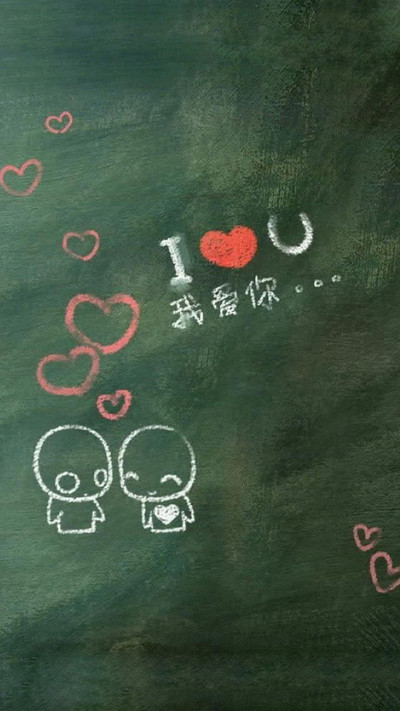 I ❤ U
我爱你...